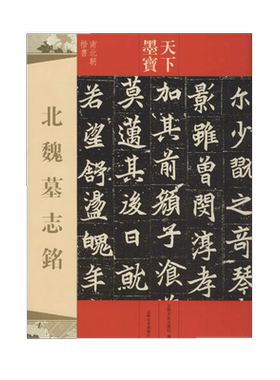 天下
墨寶
南北朝
楷書
北魏墓志銘
尔少說奇琴
影雖曽閔淳孝
加其前頟子飡道
莫邁其後日
若望舒盪魄年